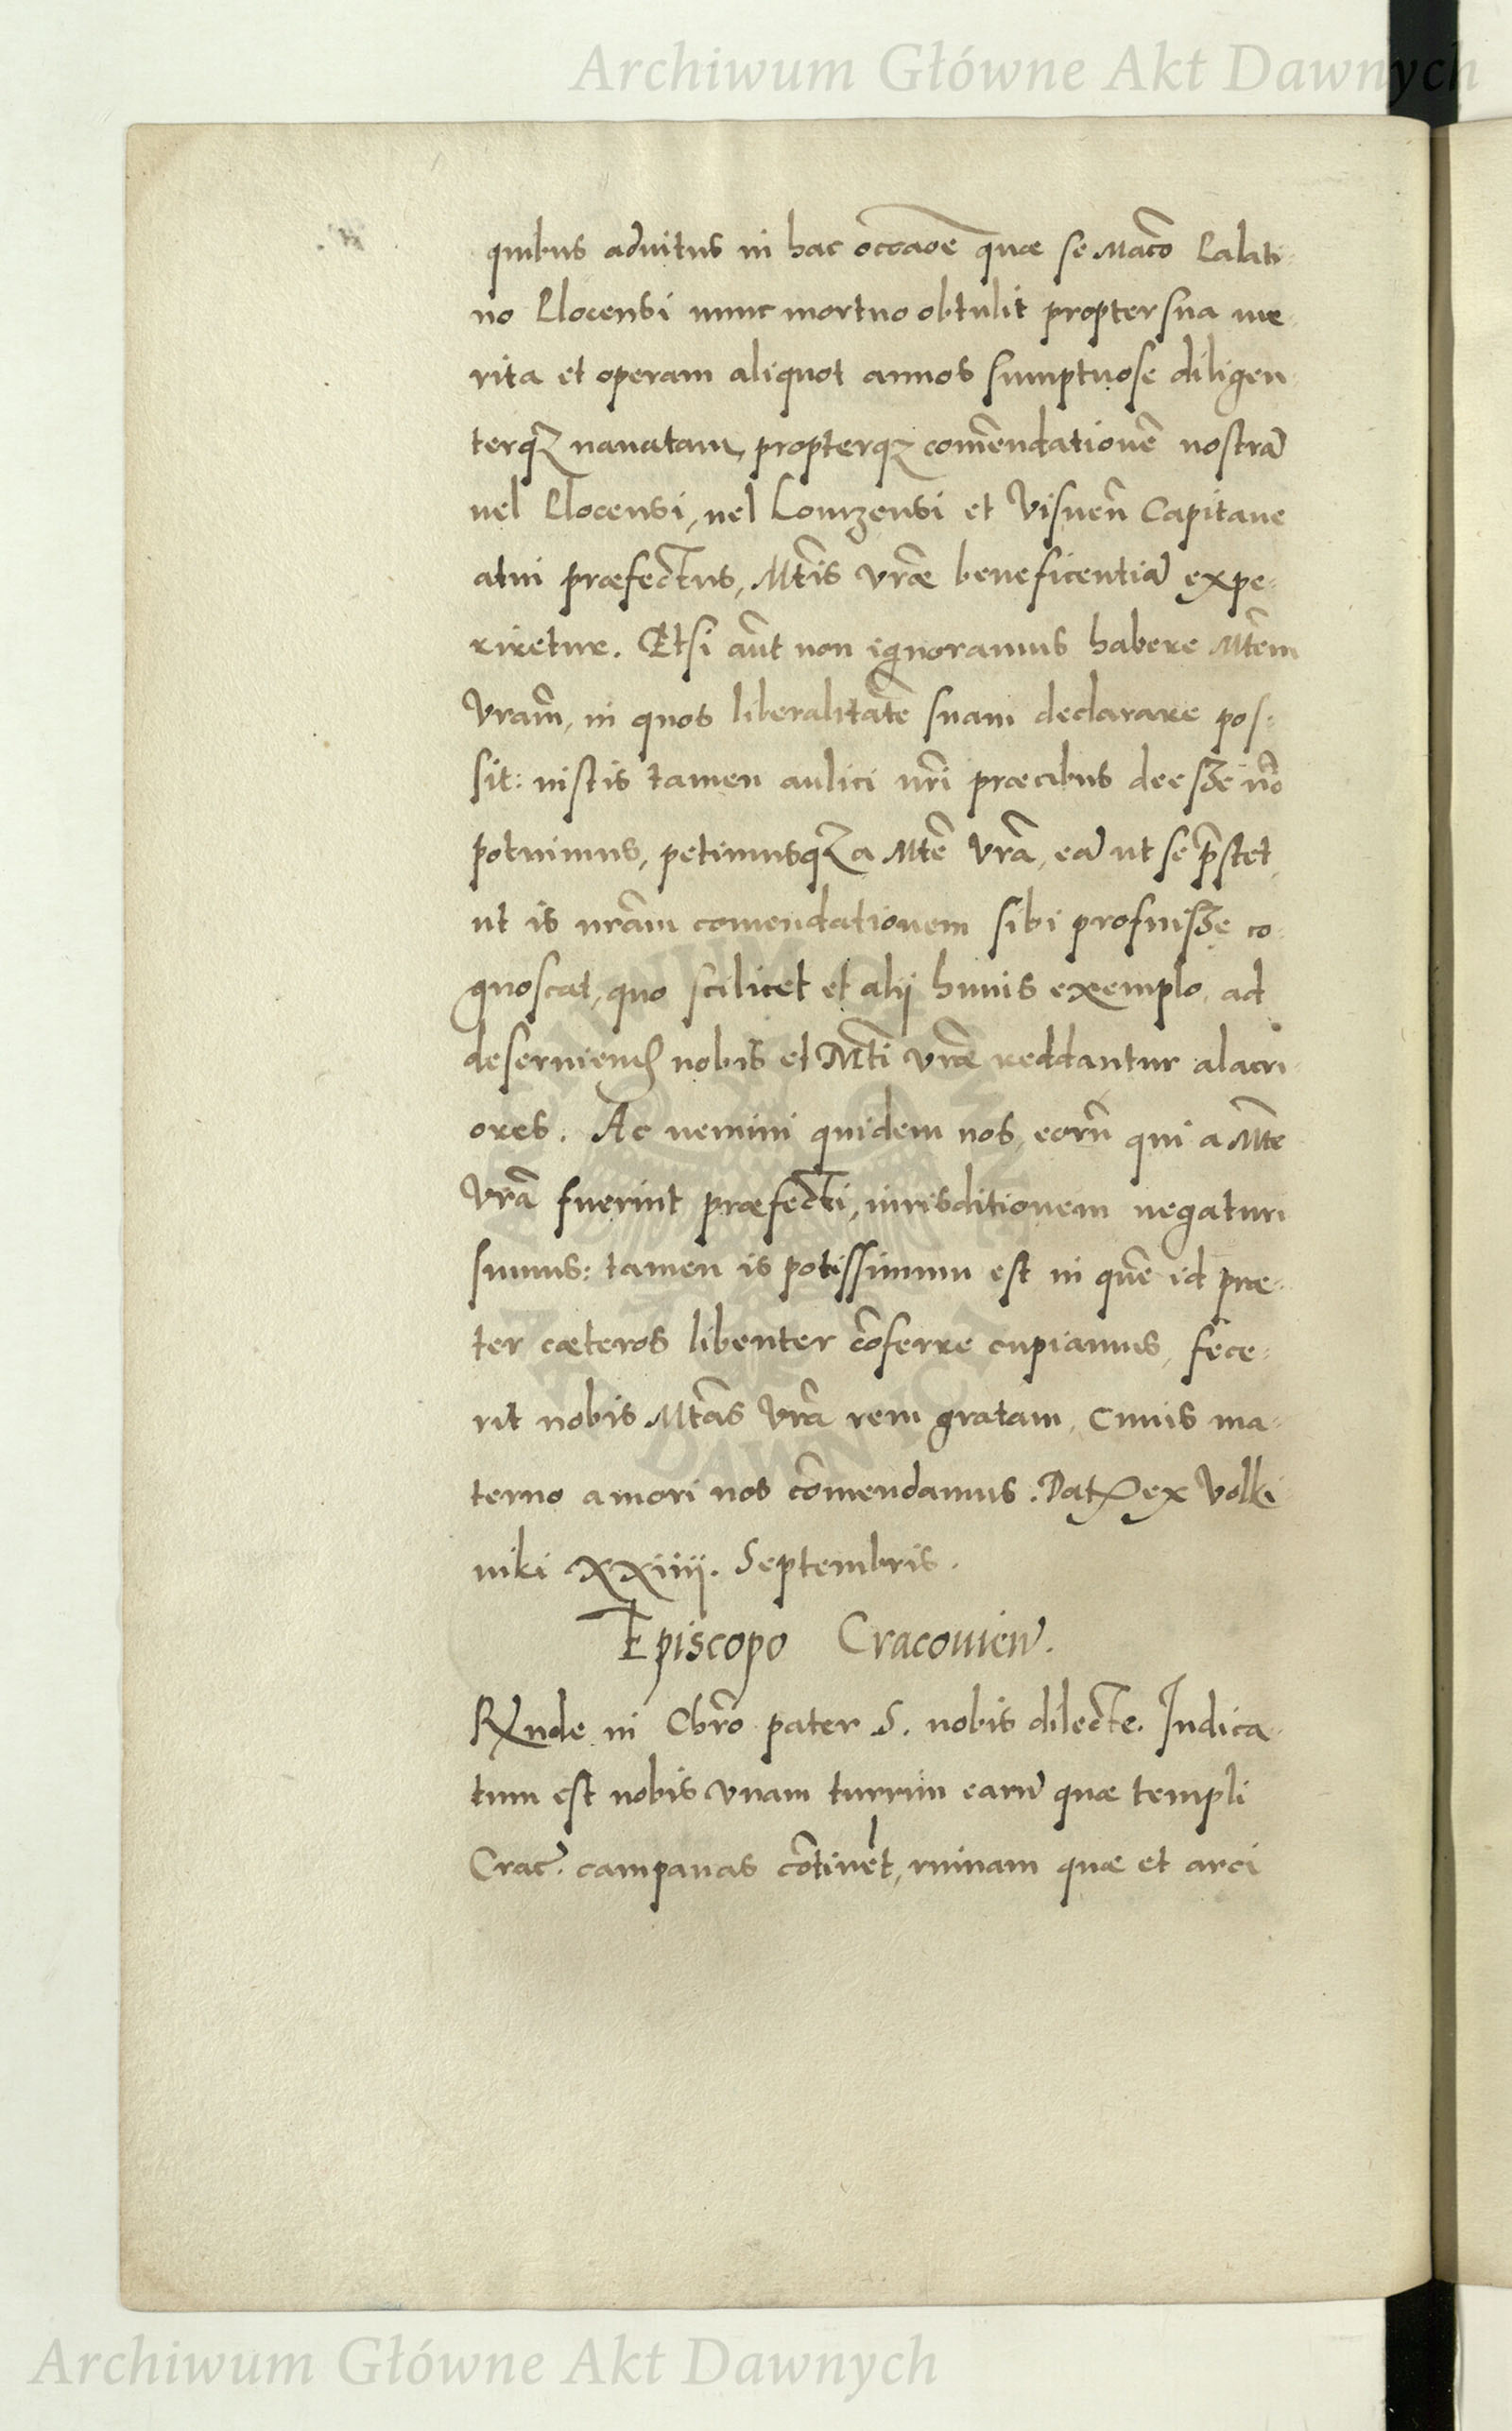 Archiwum Główne Akt Dawnych
quibus adiutus in hac occaõe quae se Maco Palati-
no Plocensi nunc mortuo obtulit propter sua me-
rita et operam aliquot annos sumptuose diligen-
terq; nauatam, propterq; comẽndationẽ nostrã
uel Plocensi, uel Lomzensi et Visneñ Capitane
atui præfectus, Mtis vræ beneficentiã expe-
riretur. Etsi aũt non ignoramus habere Mtem
Vram̃, in quos liberalitatẽ suam declarare pos-
sit: nistis tamen aulici nri præcibus deesse nõ
potuimus, petimusq; a Mte Vrã, eã ut se p̃stet,
ut is nrãm comendationem sibi profuisse co-
gnoscat, quo scilicet et alij huius exemplo, ad
deseruiend nobis et Mti vræ reddantur alacri-
ores. Ac nemini quidem nos, eorũ qui a Mte
Vrã fuerint præfecti, iurisditionem negaturi
sumus: tamen is potissimum est in quẽ id præ-
ter cæteros libenter cõferre cupiamus, fece-
rit nobis Mtas Vrã rem gratam, Cuius ma-
terno amori nos cõmendamus. Dat ex Volki
niki XXiiij. Septembris.
Episcopo Cracouieñ.
Rnde in Chro pater S. nobis dilecte. Indica-
tum est nobis vnam turrim earũ quæ templi
Crac. campanas cõtinẽt, ruinam quæ et arci
Archiwum Główne Akt Dawnych